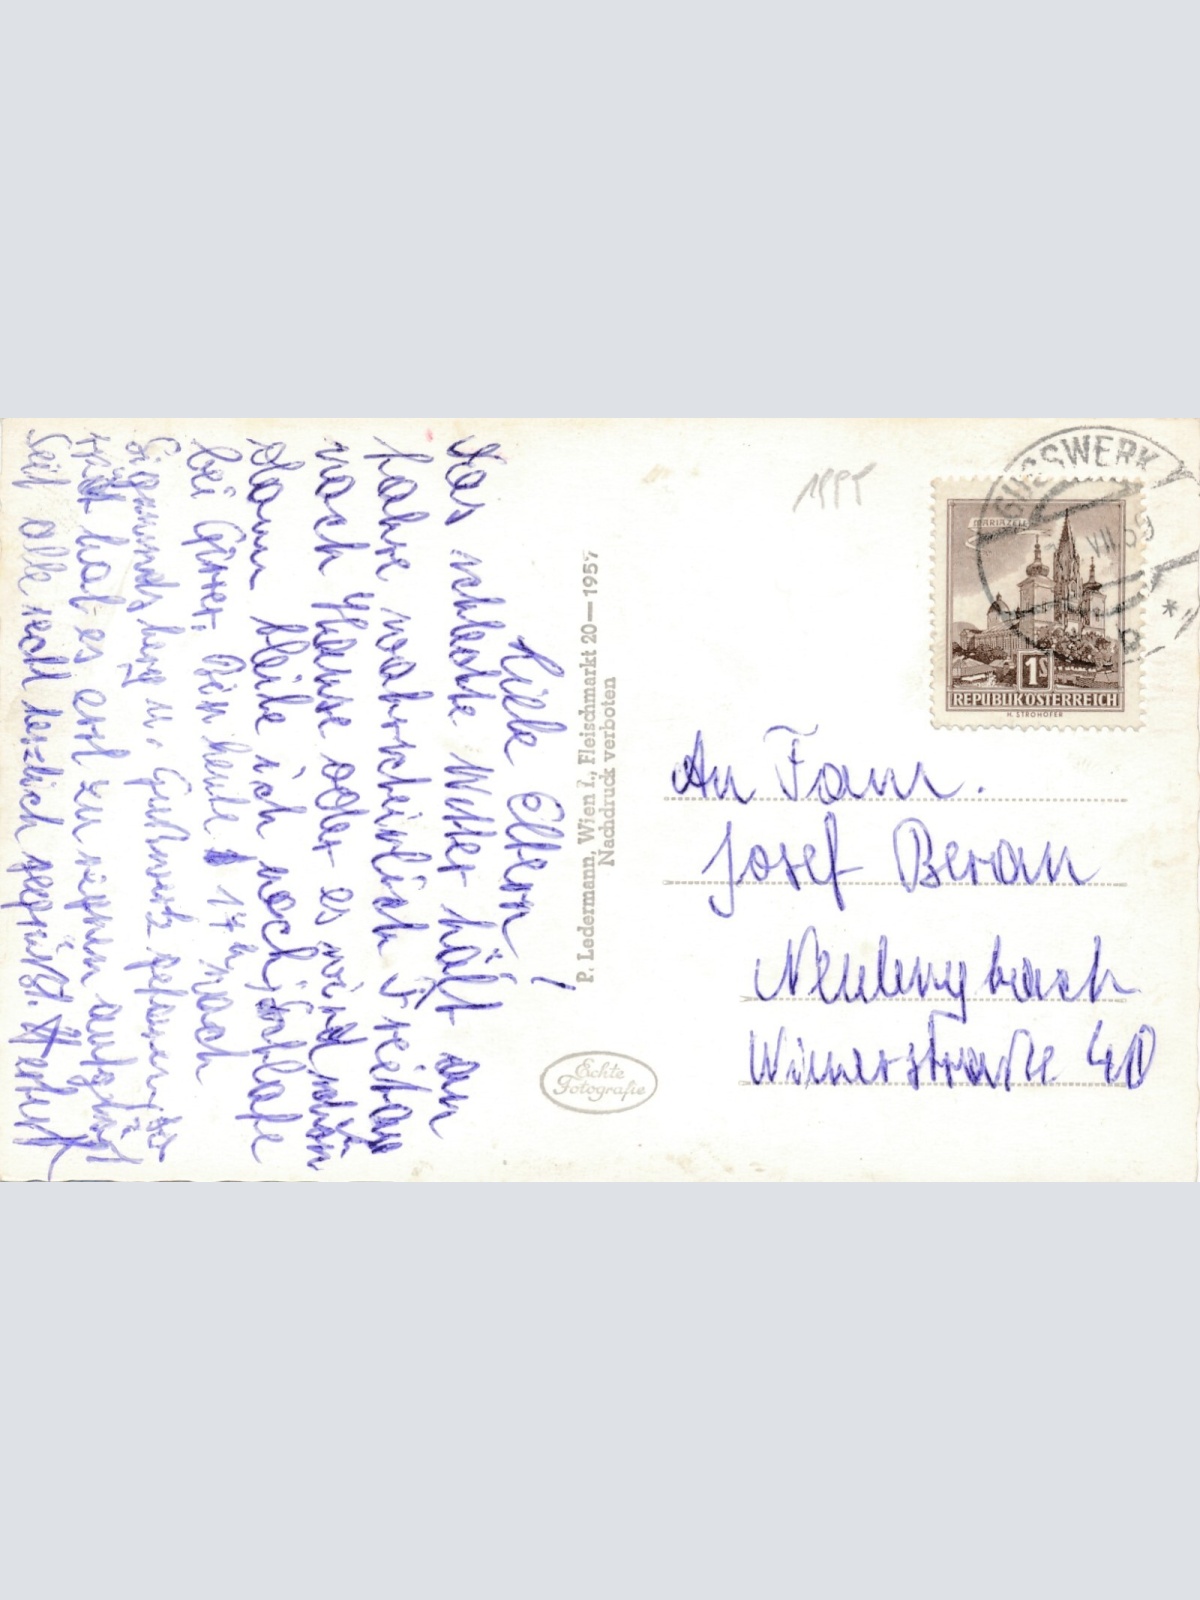 Liebe Eltern!
Das schlechte Wetter hält an
fahre wahrscheinlich Freitag
nach Hause oder es wird schön
dann bleibe ich noch, schlafe
bei Güner. Bin heute 17h nach
Sigmundsberg u. Gusswerk gefahren
hat es erst zu regnen aufgehört
Seit alle recht herzlich gegrüßt. Herbert
P. Ledermann, Wien I., Fleischmarkt 20—1957
Nachdruck verboten
Echte
Fotografie
1955
GUSSWERK
VII 59
b
MARIAZELL
1S
REPUBLIK ÖSTERREICH
H. STROHOFER
An Fam.
Josef Beran
Neulengbach
Wienerstraße 40